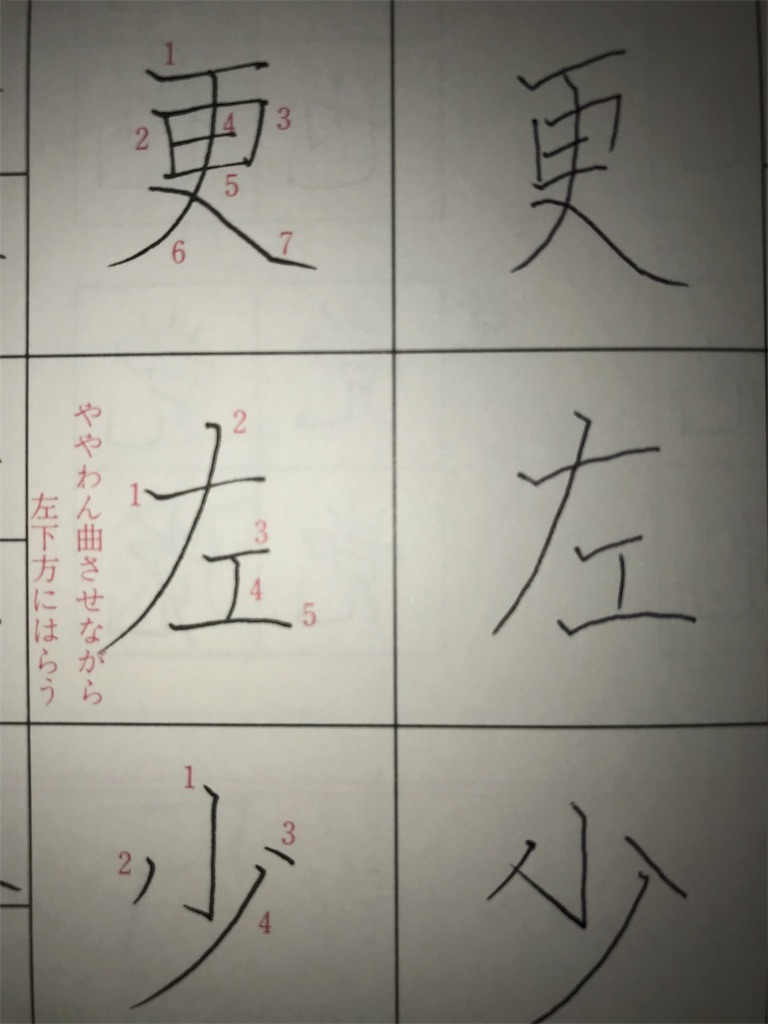 更 更
1
2
3
4
5
6
7
左 左
1
2
3
4
5
ややわん曲させながら
左下方にはらう
少 少
1
2
3
4